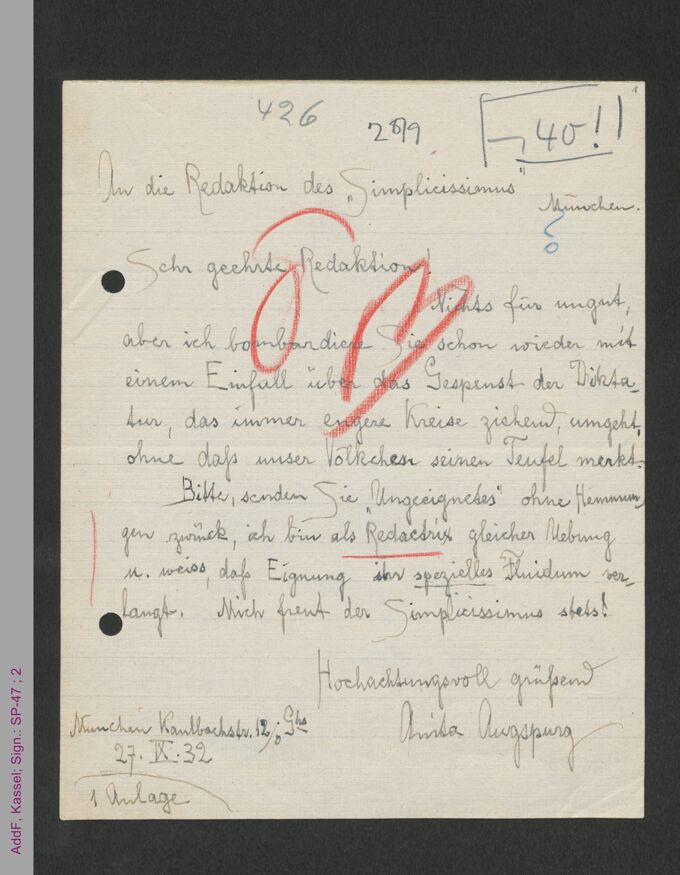 426
28/9
40!
An die Redaktion des „Simplicissimus"
München.
?
Sehr geehrte Redaktion!
Nichts für ungut,
aber ich bombardiere Sie schon wieder mit
einem Einfall über das Gespenst der Dikta-
tur, das immer engere Kreise ziehend, umgeht,
ohne daß unser Völkchen seinen Teufel merkt.
Bitte, senden Sie "Ungeeignetes" ohne Hemmun-
gen zurück, ich bin als "Redactrix gleicher Uebung
u. weiss, daß Eignung ihr spezielles Fluidum ver-
langt. Mich freut der Simplicissimus stets!
Hochachtungsvoll grüßend
Anita Augspurg
München Kaulbachstr. 12, Ghs
27. IX. 32
1 Anlage
AddF, Kassel; Sign.: SP-47 ; 2